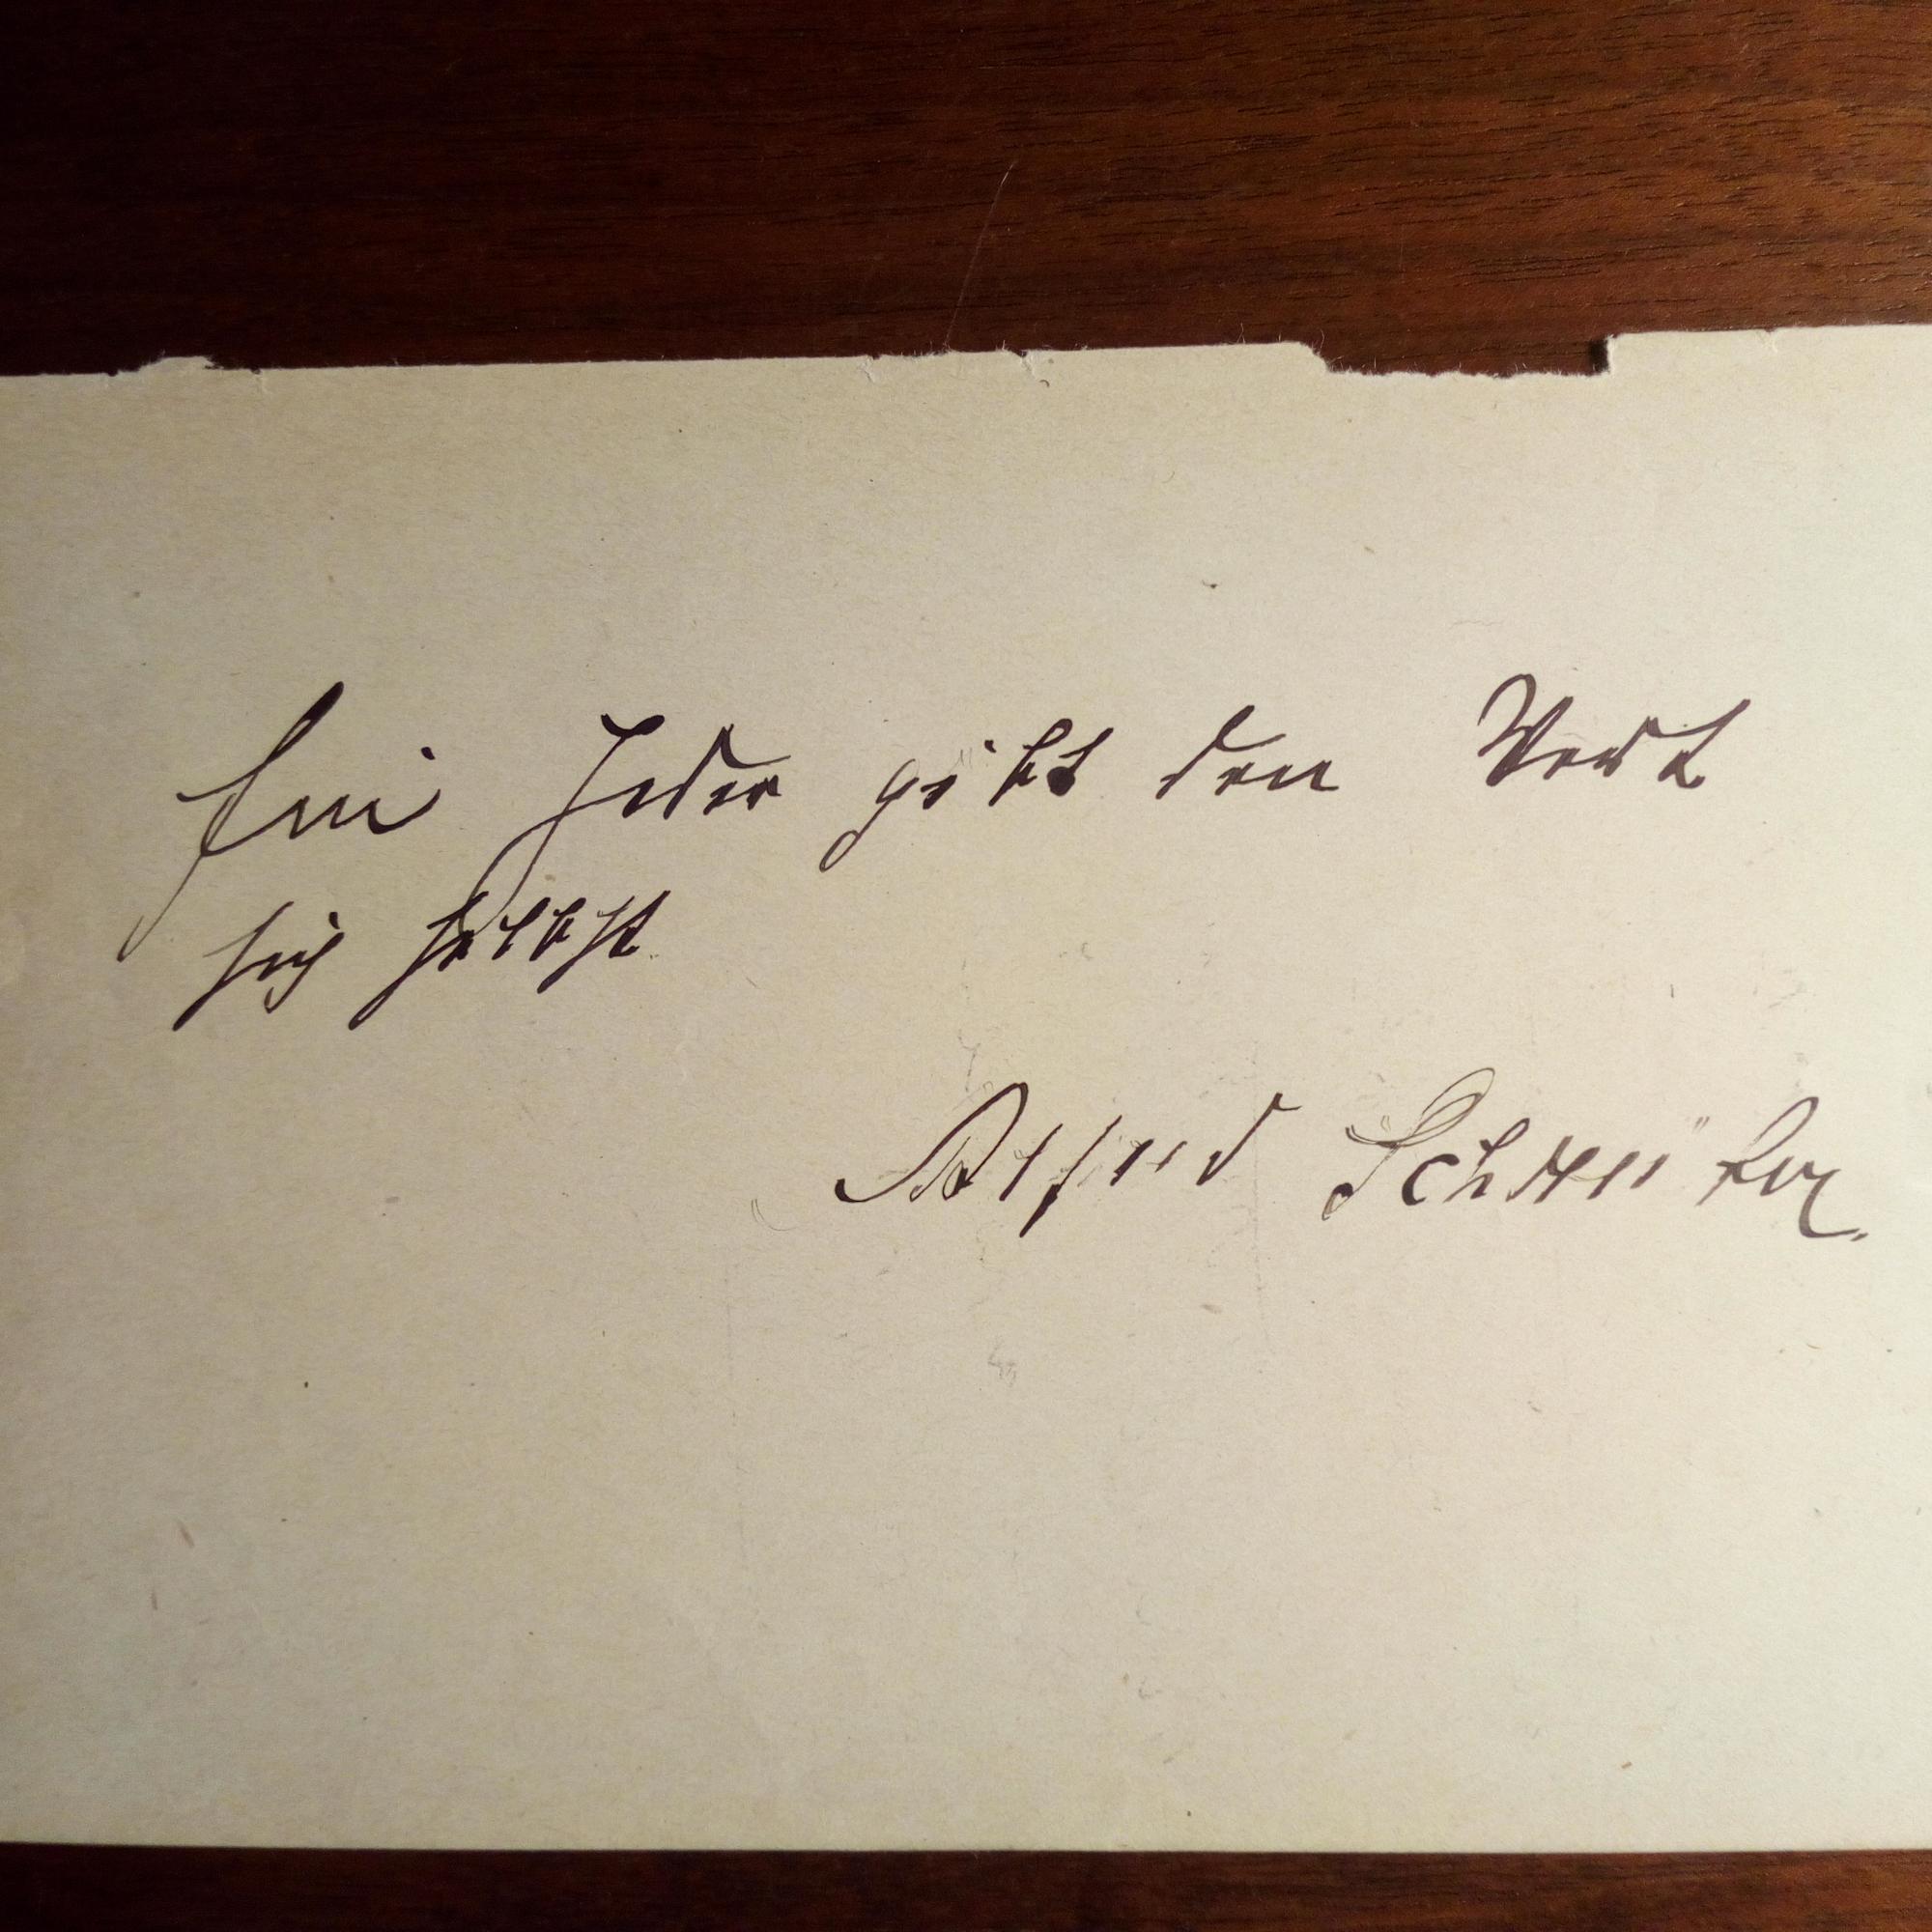 Ein Jeder gibt den Wert
sich selbst.
Alfred